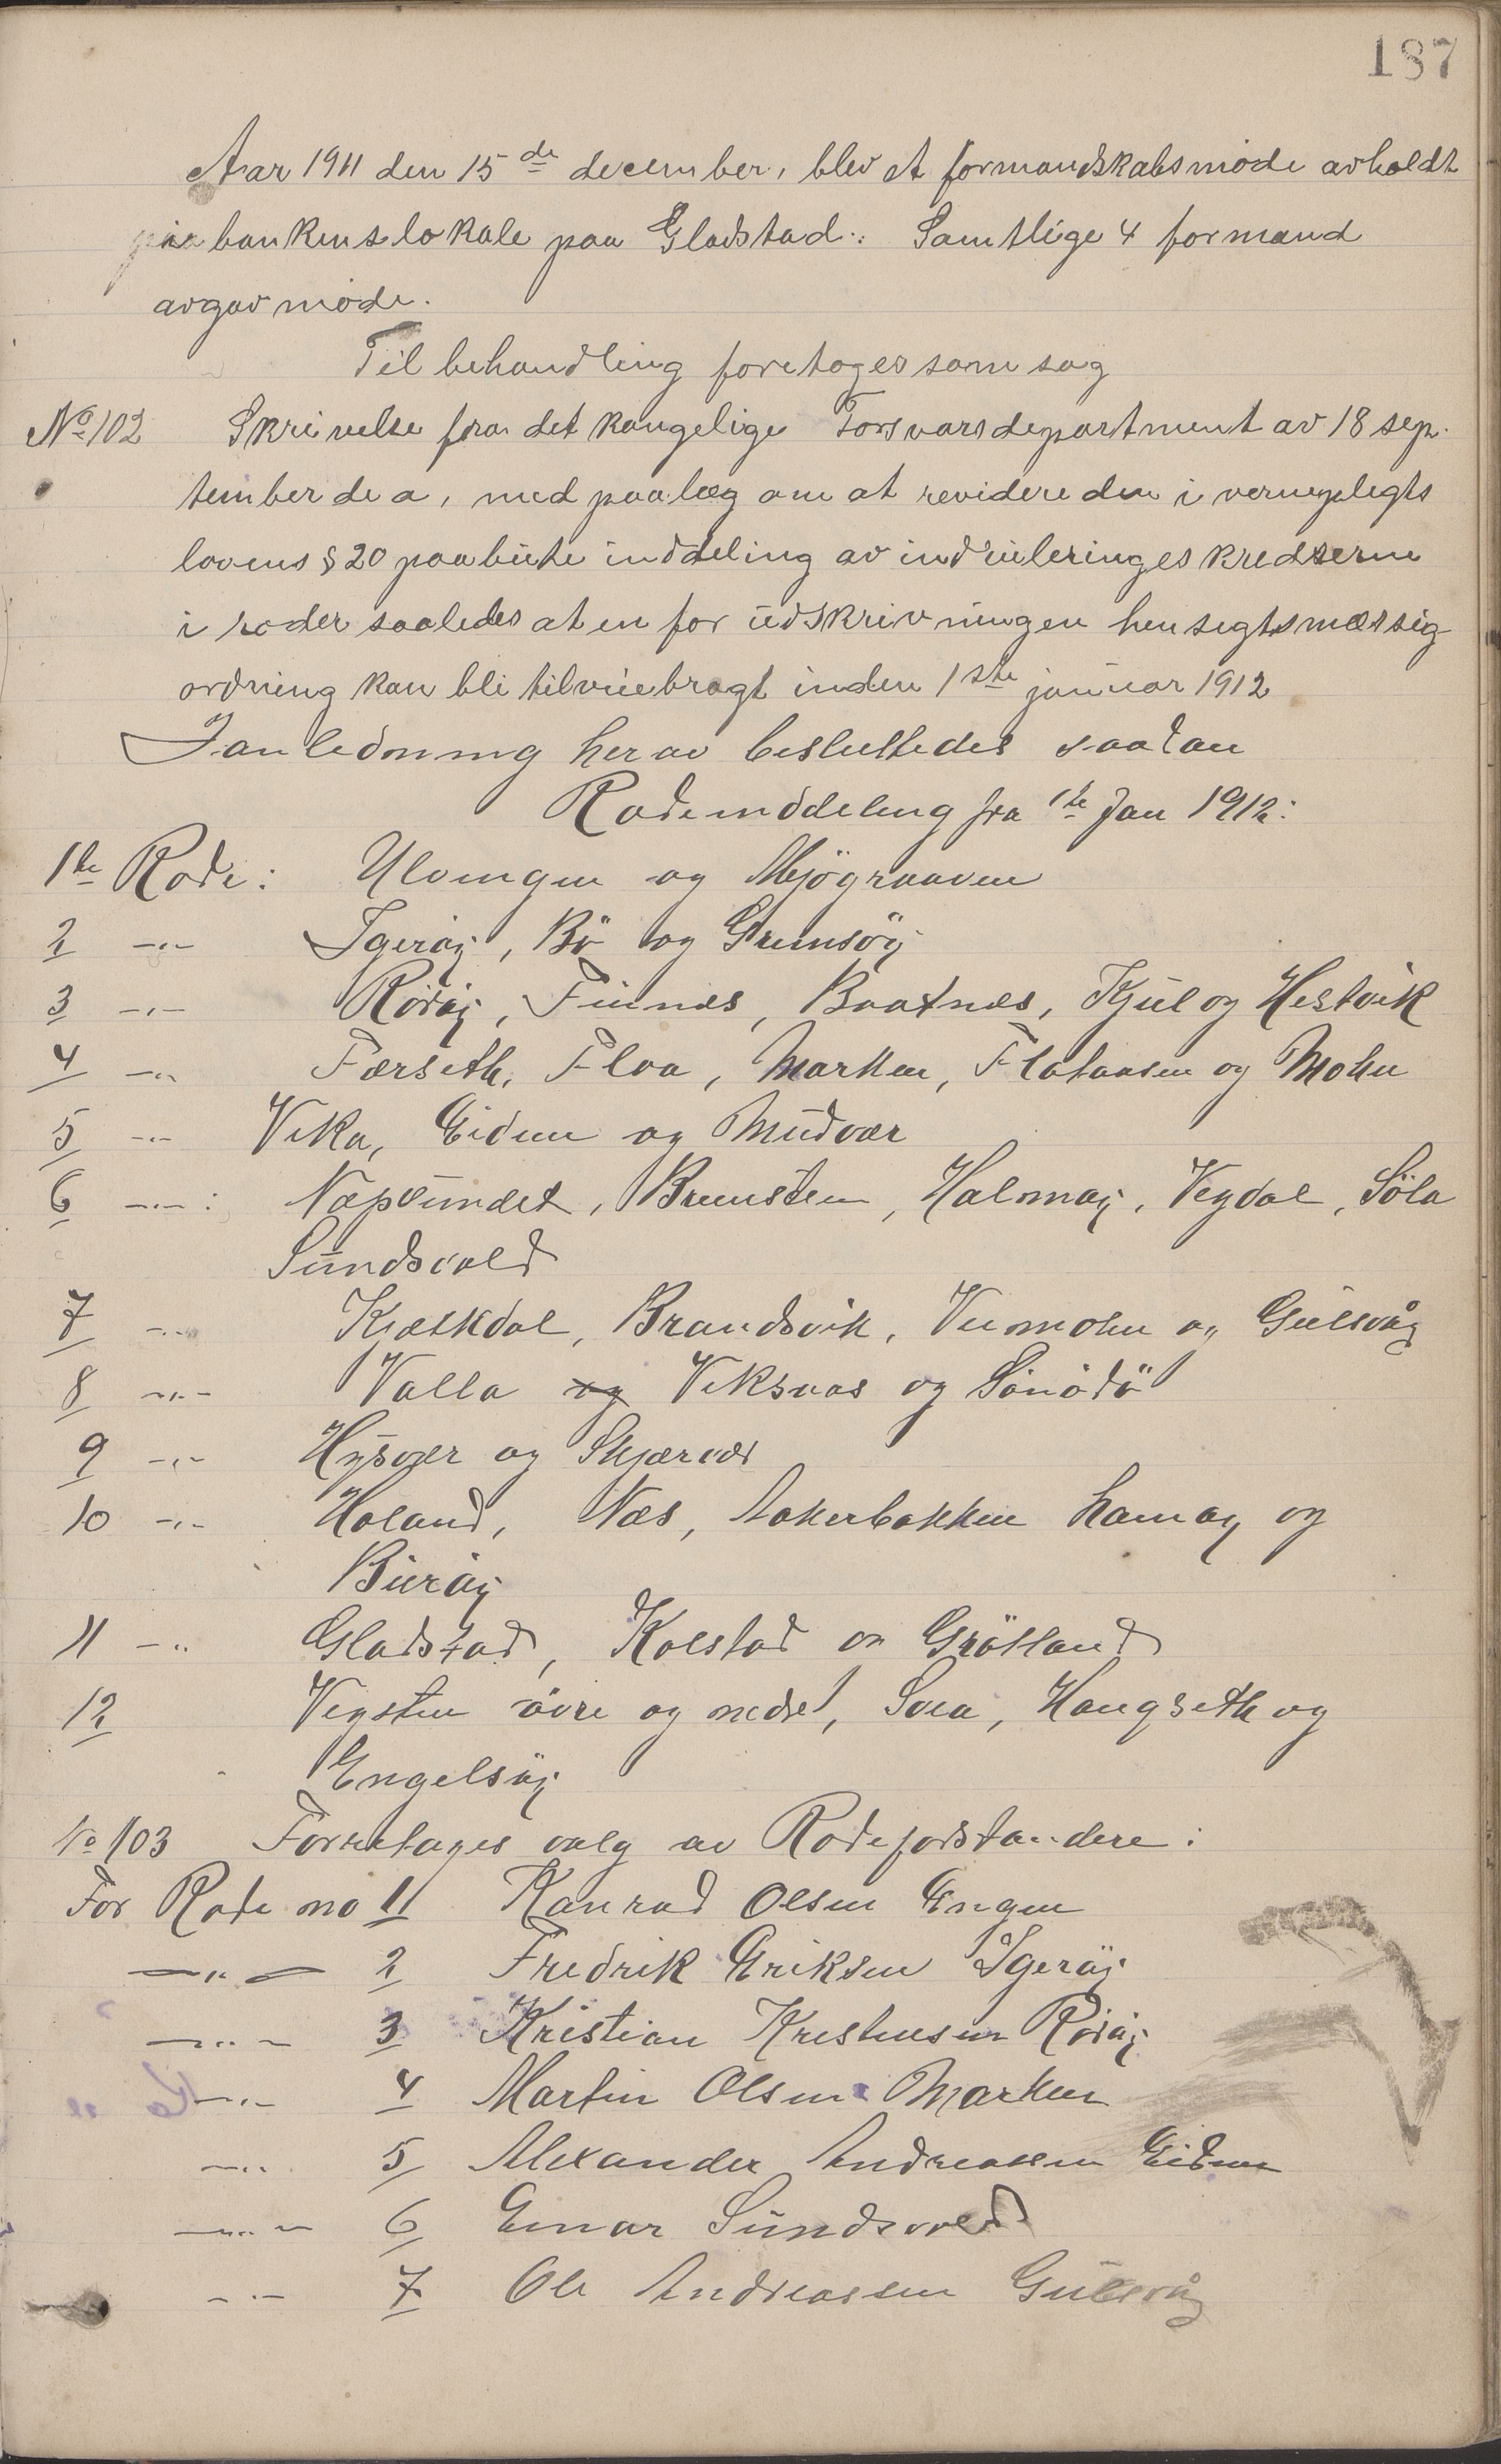 187
Aar 1911 den 15de december, blev et formandskabsmöde avholdt
paa bankens lokale paa Gladstad.. Samtlige 4 formænd
avgav möde.
Til behandling foretoges som sag
No 102 Skrivelse fra det kongelige Forsvarsdepartment av 18 sep-
tember d. a, med paalæg om at revidere den i vernepligts
lovens § 20 paabudte inddeling av indrulleringeskredserne
i roder saaledes at en for udskrivningen hensigtsmæssig
ordning kan bli tilveiebragt inden 1ste januar 1912
I anledning herav besluttedes saadan
Rodeinddeling fra 1te Jan 1912:
1te Rode: Ulvingen og Mjögraaven
2 -"- Igeröy, Bö og Grimsöy
3 -"- Röröy, Finnes, Baatnes, Kjul og Hestvik
4 -"- Færseth, Floa, Marken, Flataasen og Mohn
5 -"- Vika, Eidem og Mudvær
6 -"-: Næpsundet, Bremsten, Halmöy, Vegdal, Söla
Sundsvold
7 -"- Kjælkdal, Brandsvik, Vermohn og Gulsvåg
8 -"- Valla og Viksaas og Sönödö
9 -"- Hysvær og Skjærvær
10 -"- Holand, Næs, Aakerbakken Hamöy og
Buröy
11 -"- Gladstad, Kolstad og Grötland
12 Vegsten övre og nedre, Svea, Haugseth og
Engelsöy
No 103 Forretages valg av Rodeforstandere:
For Rode no 1 Konrad Olsen Engen
-"- 2 Fredrik Eriksen Igeröy
-"- 3 Kristian Kristensen Röröy
-"- 4 Martin Olsen Marken
-"- 5 Alexander Andreassen Eidem
-"- 6 Einar Sundsvold
-"- 7 Ole Andreassen Gulsvåg